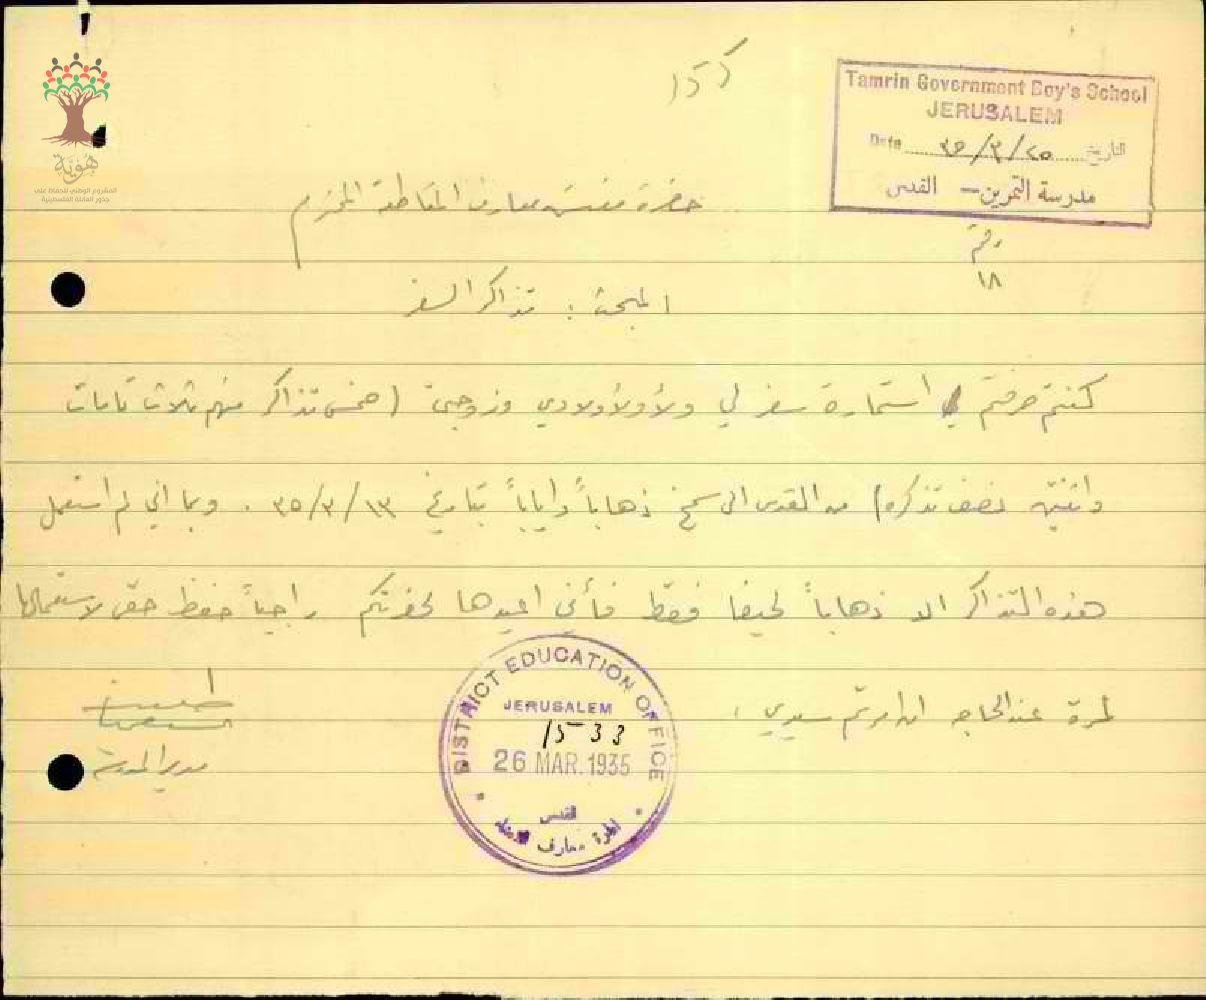 هوية
المشروع الوطني للحفاظ على
جذور العائلة الفلسطينية
Tamrin Government Boy's School
JERUSALEM
Date ٢٥/٣/٣٥ التاريخ
مدرسة التمرين — القدس
رقم
١٨
حضرة مفتش معارف المقاطعة المحترم
المبحث : تذاكر السفر
كنتم صرفتم لي استمارة سفر لي ولأولادي وزوجتي (خمس تذاكر منهم ثلاث تامات
واثنتين نصف تذكره) من القدس الى سمخ ذهاباً واياباً بتاريخ ١٣/٣/٣٥ . وبما اني لم استعمل
هذه التذاكر الا ذهاباً لحيفا فقط فأني اعيدها لحضرتكم راجياً حفظ حق لاستعمالها
لمرة عند الحاجه ان امرتم سيدي .
مدير المدرسة
DISTRICT EDUCATION OFFICE
JERUSALEM
1533
26 MAR. 1935
القدس
ادارة معارف